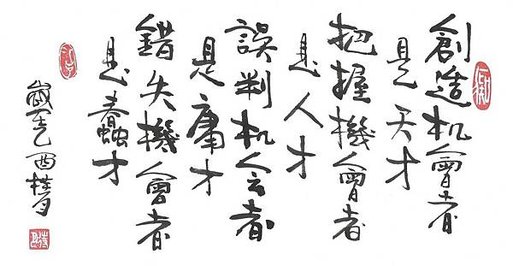 創造机會者
是天才
把握機會者
是人才
誤判机会者
是庸才
錯失機會者
是蠢才
歲乙酉